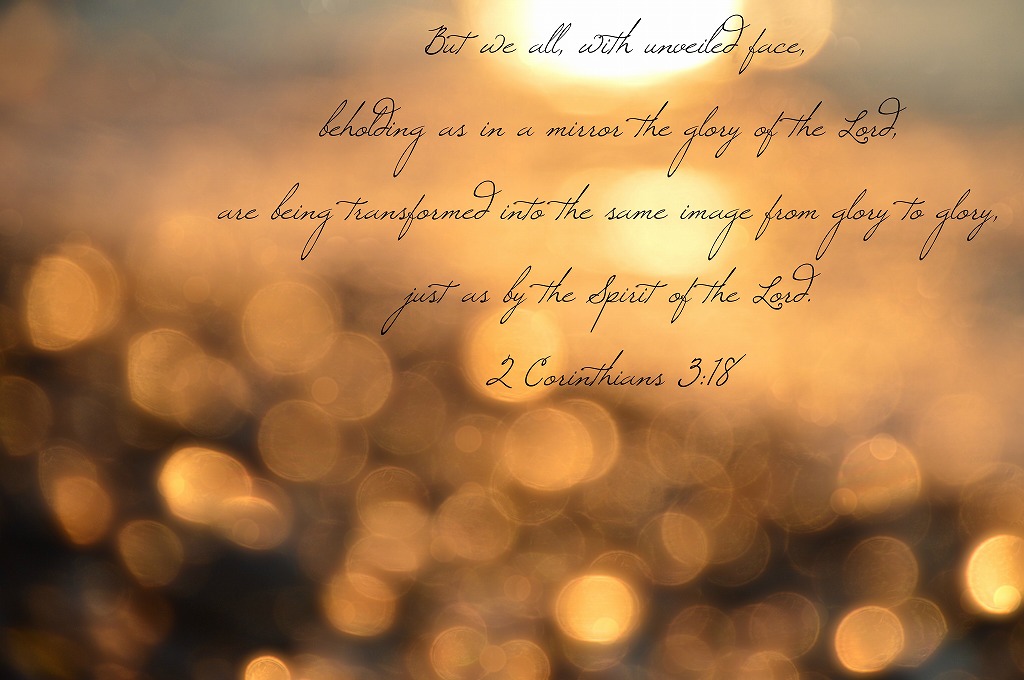 But we all, with unveiled face,
beholding as in a mirror the glory of the Lord,
are being transformed into the same image from glory to glory,
just as by the Spirit of the Lord.
2 Corinthians 3:18